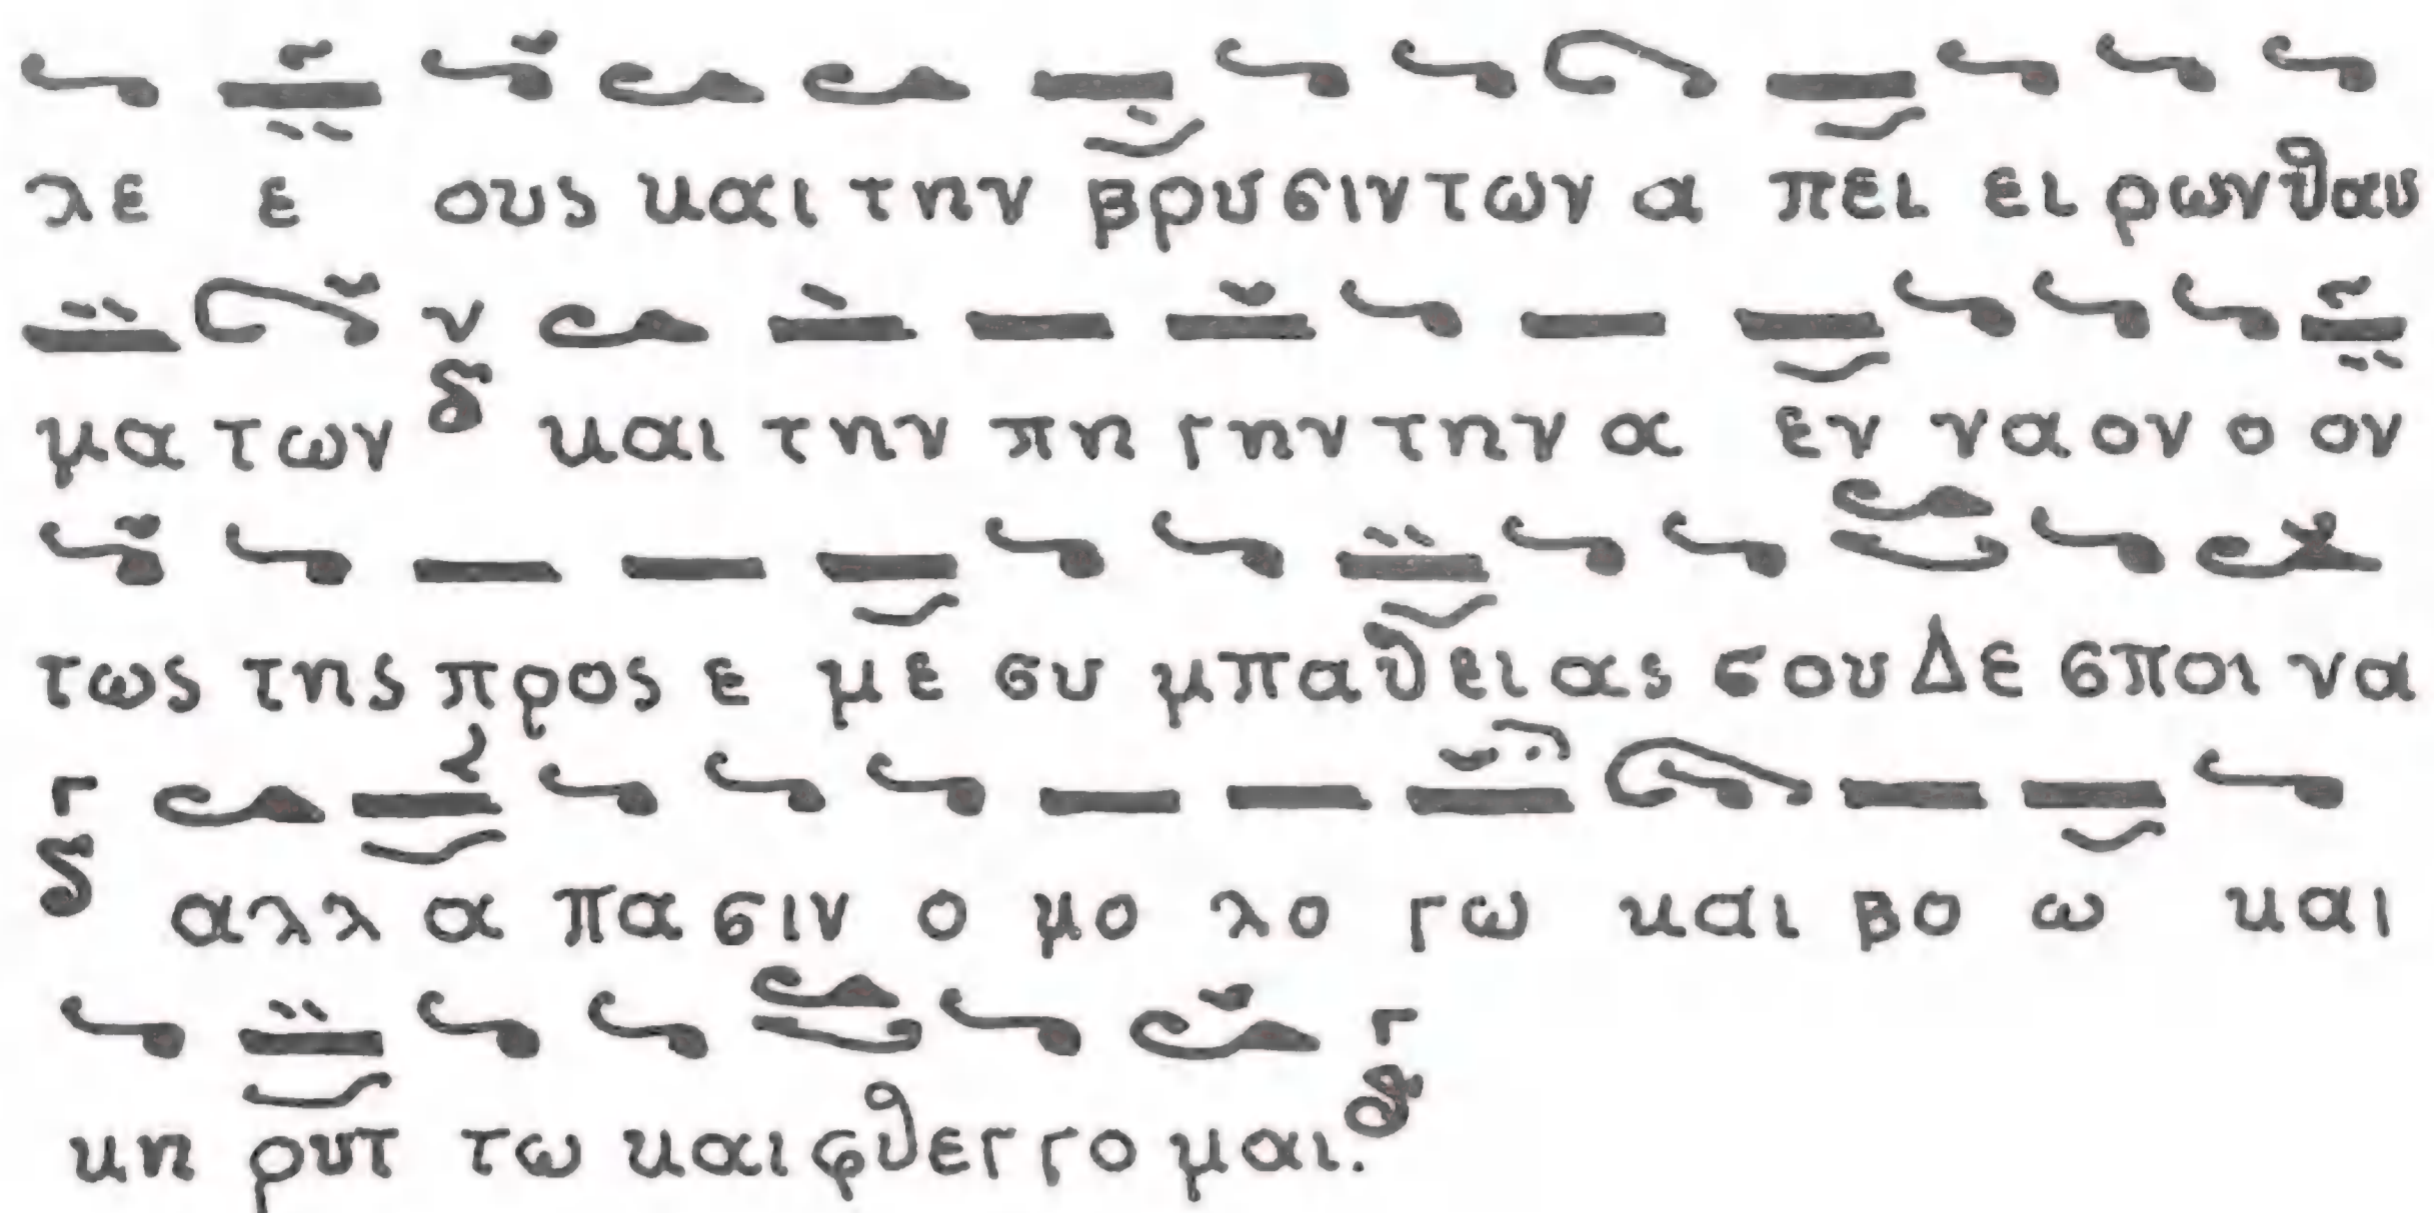 λε ε ους και την βρυσιν των α πει ει ρων θαυ
μα των και την πη γην την α εν ναον ο ον
τως της προς ε με συ μπαθειας σου Δε σποι να
αλλ α πασιν ο μο λο γω και βο ω και
κη ρυτ τω και φθεγ γο μαι.